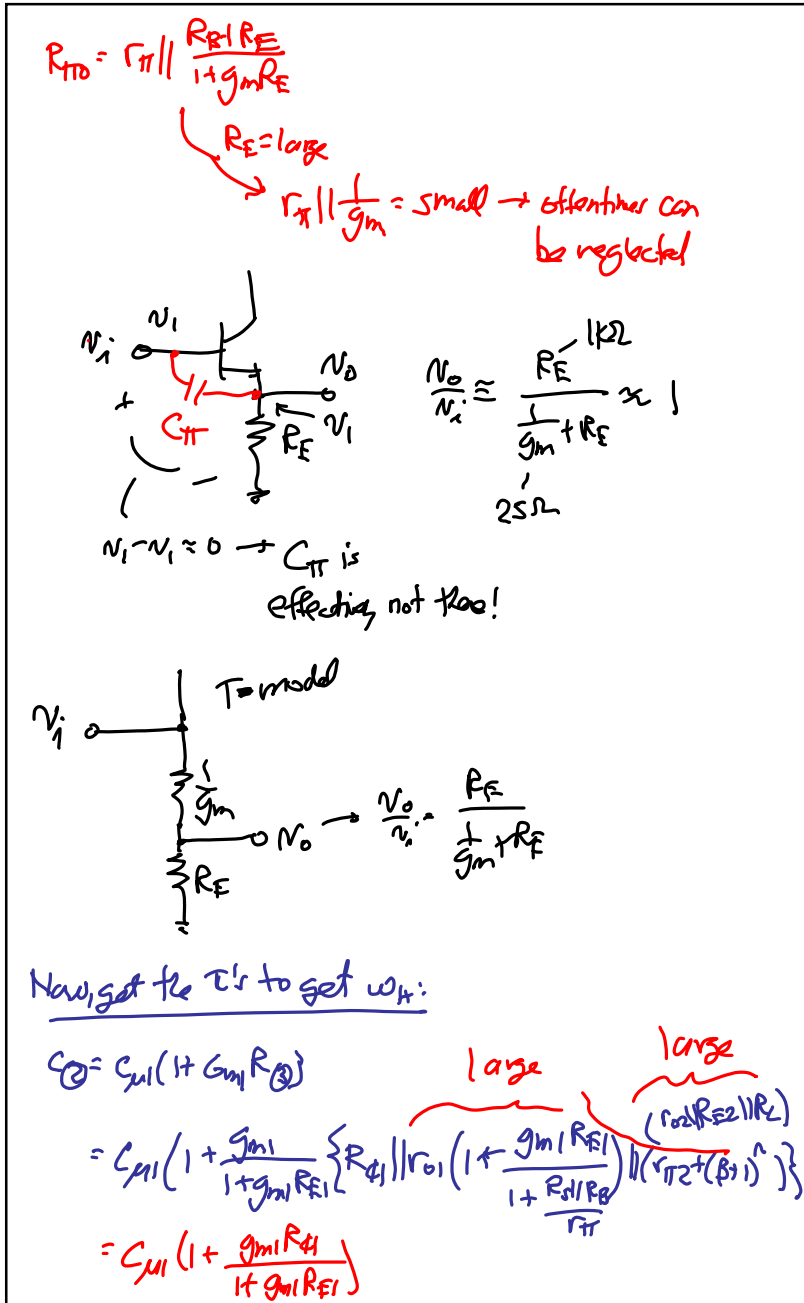 R_πo = r_π || (R_B + R_E)/(1 + g_m R_E)
R_E = large
r_π || 1/g_m = small → oftentimes can
be neglected
v_i v_1 v_o
+ C_π R_E v_1
−
v_o/v_i ≅ R_E/(1/g_m + R_E) ≈ 1
1kΩ
25Ω
v_1 - v_1 ≈ 0 → C_π is
effectively not there!
T-model
v_i
1/g_m
v_o → v_o/v_i = R_E/(1/g_m + R_E)
R_E
Now, get the τ's to get ω_H:
C_② = C_μ1(1 + G_m1 R_②)
large large
= C_μ1(1 + g_m1/(1 + g_m1 R_E1) {R_C1 || r_o1(1 + g_m1 R_E1/(1 + (R_S || R_B)/r_π)) || (r_π2 + (β+1)(r_o2 || R_E2 || R_L))}
= C_μ1(1 + g_m1 R_C1/(1 + g_m1 R_E1))